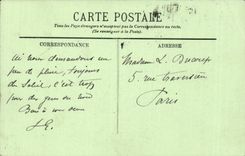 CARTE POSTALE
Tous les Pays étrangers n'acceptent pas la Correspondance au recto.
(Se renseigner à la Poste)
CORRESPONDANCE
ADRESSE
Ici nous demandons un
peu de pluie, toujours
du soleil, c'est trop
pour des gens du nord
Bon à vous deux
Madame L. Ducrocq
5 rue traversière
Paris